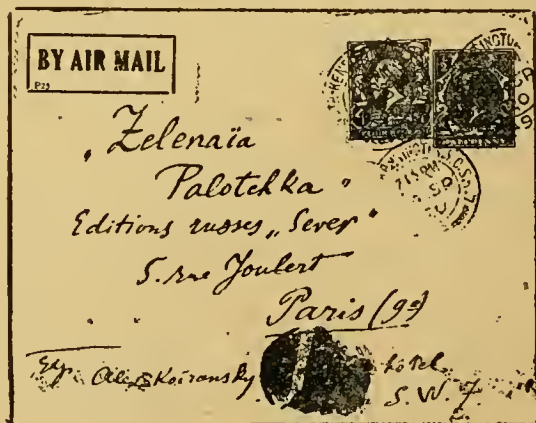 BY AIR MAIL
P23
„Zelenaïa
Palotchka"
Editions russes „Sever"
5. rue Joubert
Paris (9e)
Exp. Alex Koiransky
hôtel
S. W. 7.